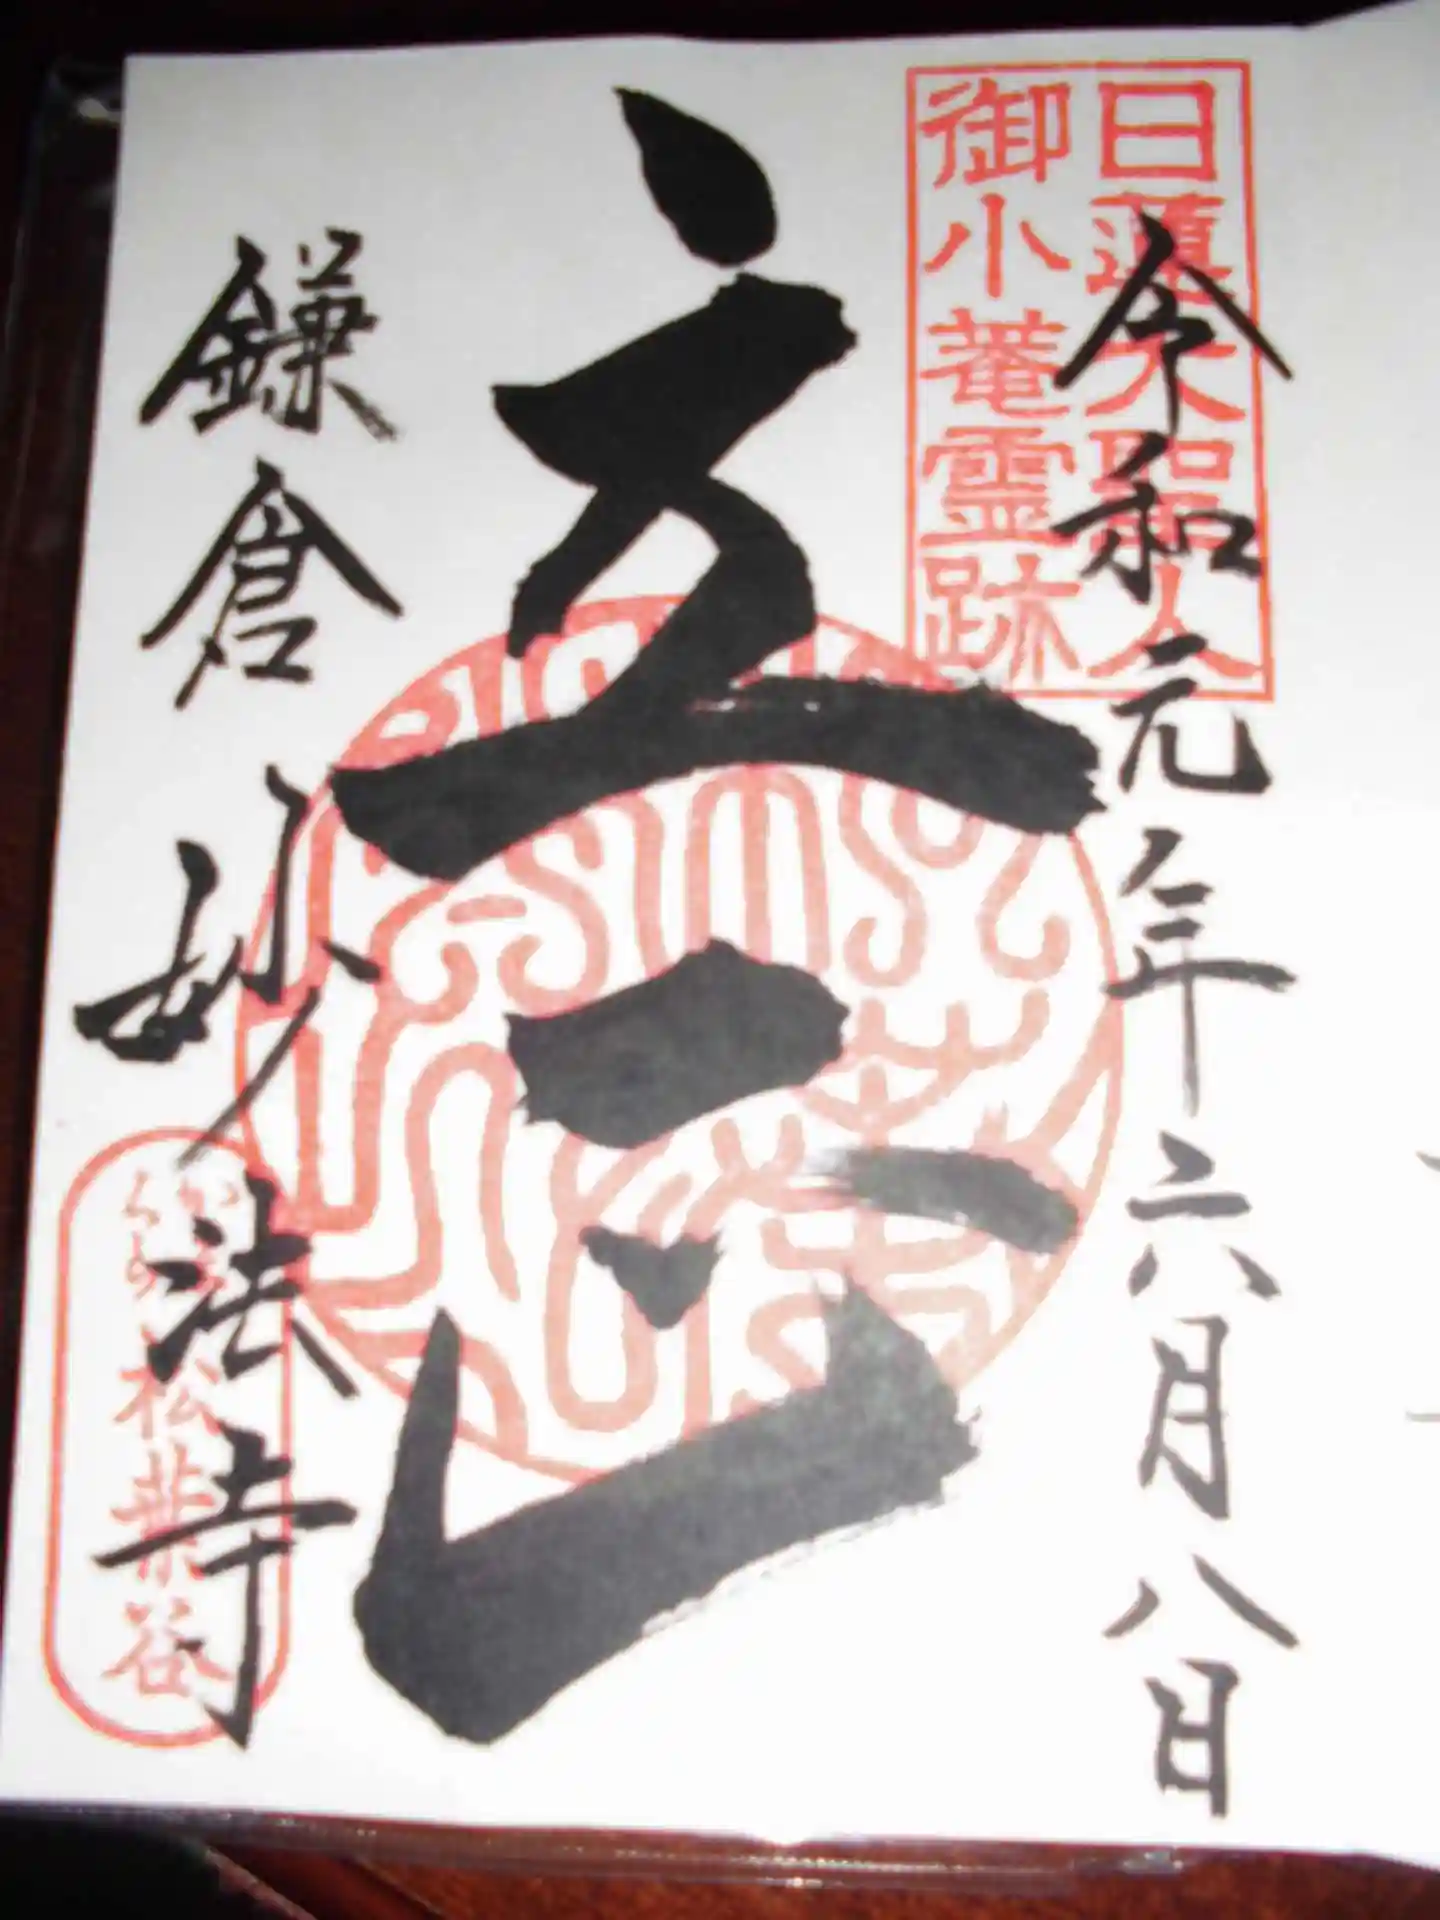 日蓮大聖人
御小菴霊跡
令和元年六月八日
立正
鎌倉妙法寺
かまくら
松葉谷